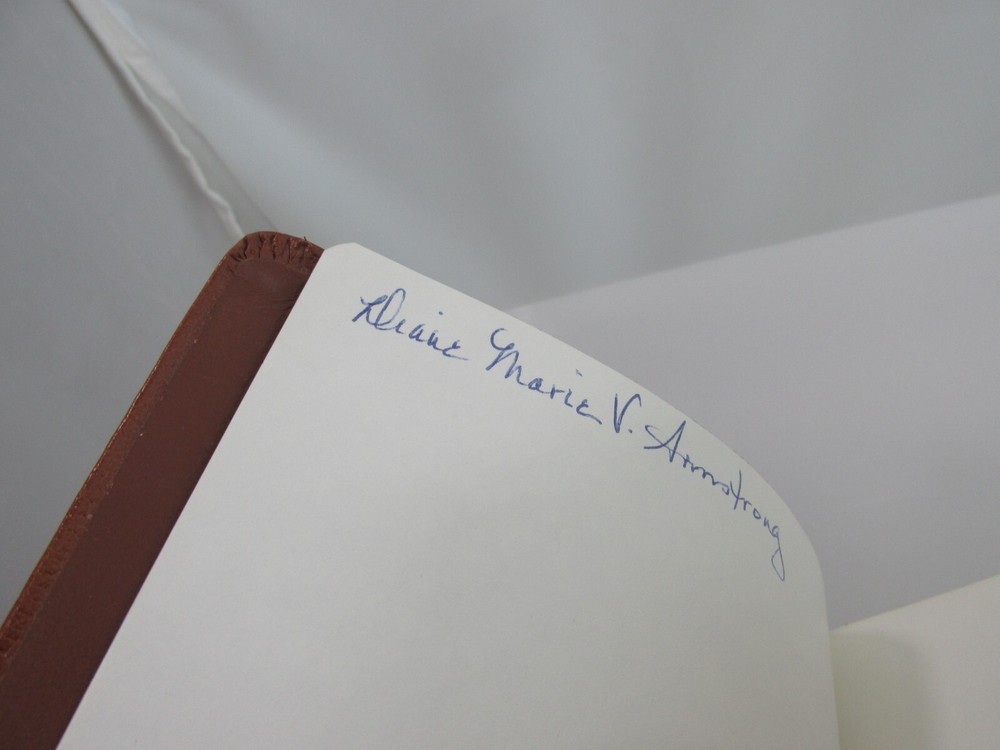 Diane Marie V. Armstrong